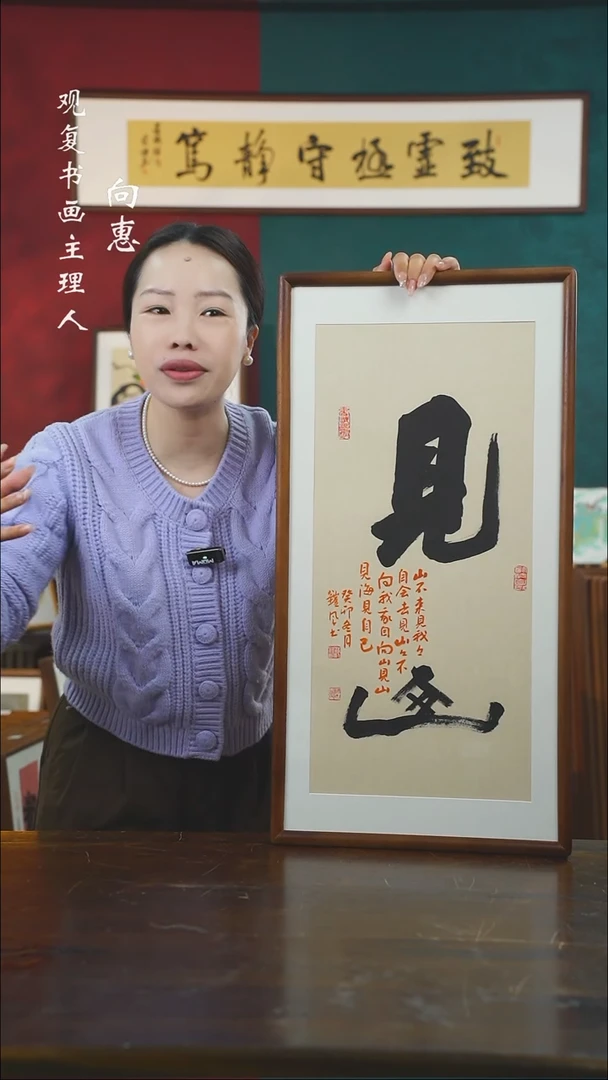 观复书画主理人
向惠
致虚極守静篤
見山
山不来見我々
自会去見山々不
向我我自向山見山
見海見自己
癸卯冬月